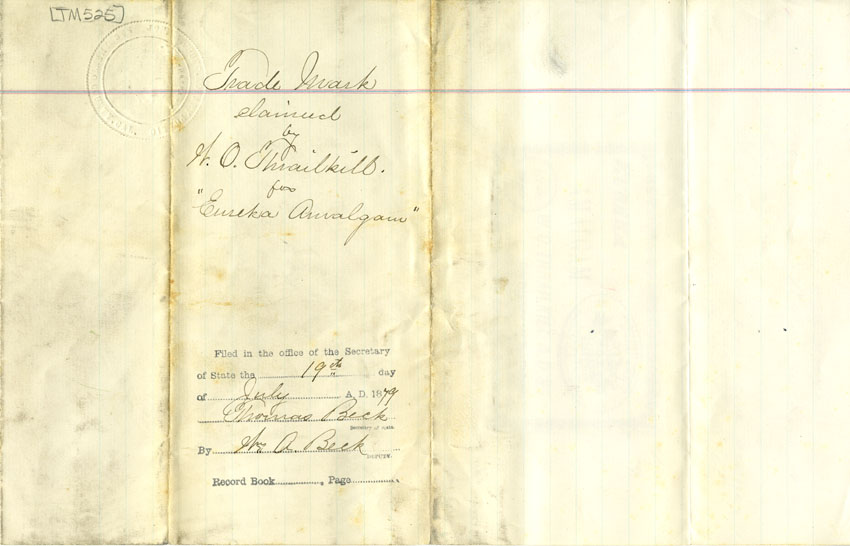 [TM525]
Trade Mark
claimed
by
W. O. Thrailkill.
for
"Eureka Amalgam"
Filed in the office of the Secretary
of State the 19th day
of July A. D. 1879
Thomas Beck
Secretary of State.
By Wm A. Beck
DEPUTY.
Record Book , Page